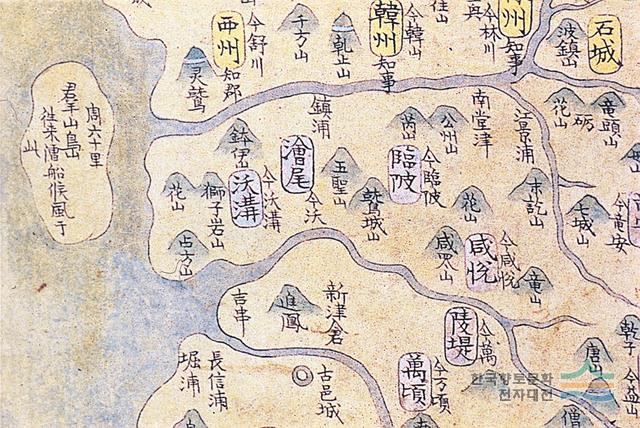 西州
今舒川
知郡
千方山
乾止山
韓州
今韓山
知事
今林川
知事
波鎮山
石城
灵鷲
周六十里
群山島
往来漕船候風于山
鎮浦
公州山
南堂津
江景浦
花山
砺
竜頭山
鉢伊山
澮尾
今沃
五聖山
臨陂
今臨陂
花山
獅子岩山
沃溝
今沃溝
鷲城山
花山
七城山
今竜安
占方山
咸悦
今咸悦
竜山
吉串
新津倉
堤
今萬
乾子
唐山
今益山
堀浦
長信浦
古邑城
萬頃
今万頃
僧
한국향토문화
전자대전